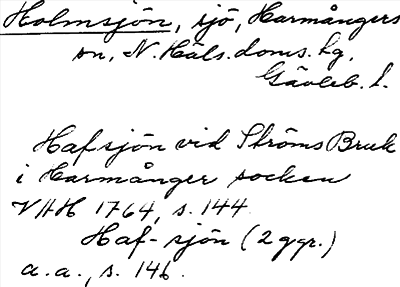 Holmsjön, sjö, Harmångers
sn, N. Häls. doms. hg,
Gävleb. l.
Hafsjön vid Ströms Bruk
i Harmånger socken
VAH 1764, s. 144
Haf-sjön (2 ggr.)
a.a., s. 146.